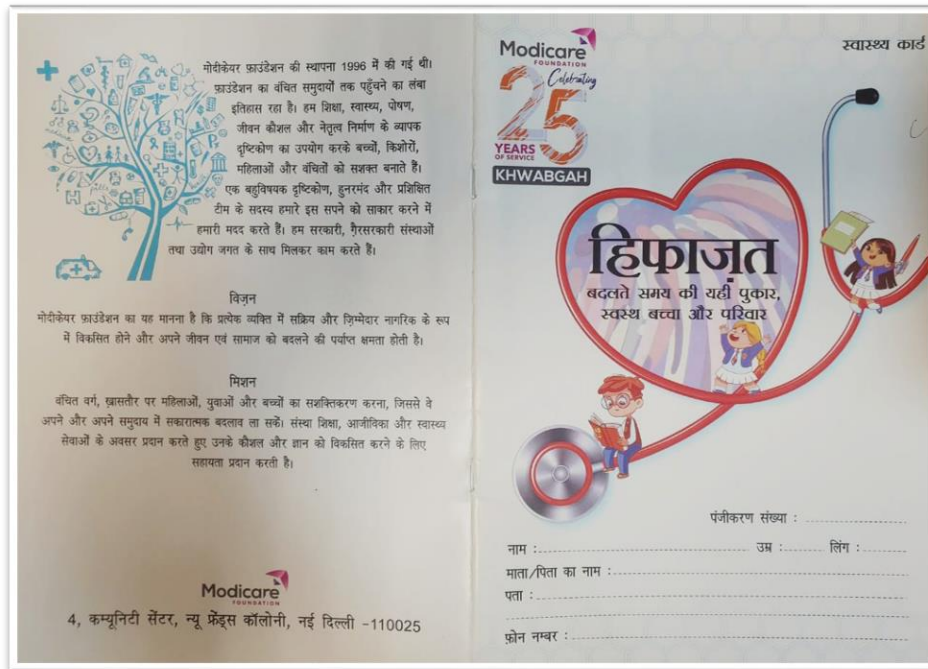 मोदीकेयर फ़ाउंडेशन की स्थापना 1996 में की गई थी।
फ़ाउंडेशन का वंचित समुदायों तक पहुँचने का लंबा
इतिहास रहा है। हम शिक्षा, स्वास्थ्य, पोषण,
जीवन कौशल और नेतृत्व निर्माण के व्यापक
दृष्टिकोण का उपयोग करके बच्चों, किशोरों,
महिलाओं और वंचितों को सशक्त बनाते हैं।
एक बहुविषयक दृष्टिकोण, हुनरमंद और प्रशिक्षित
टीम के सदस्य हमारे इस सपने को साकार करने में
हमारी मदद करते हैं। हम सरकारी, ग़ैरसरकारी संस्थाओं
तथा उद्योग जगत के साथ मिलकर काम करते हैं।
विज़न
मोदीकेयर फ़ाउंडेशन का यह मानना है कि प्रत्येक व्यक्ति में सक्रिय और ज़िम्मेदार नागरिक के रूप
में विकसित होने और अपने जीवन एवं सामाज को बदलने की पर्याप्त क्षमता होती है।
मिशन
वंचित वर्ग, ख़ासतौर पर महिलाओं, युवाओं और बच्चों का सशक्तिकरण करना, जिससे वे
अपने और अपने समुदाय में सकारात्मक बदलाव ला सकें। संस्था शिक्षा, आजीविका और स्वास्थ्य
सेवाओं के अवसर प्रदान करते हुए उनके कौशल और ज्ञान को विकसित करने के लिए
सहायता प्रदान करती है।
Modicare
FOUNDATION
4, कम्यूनिटी सेंटर, न्यू फ्रेंड्स कॉलोनी, नई दिल्ली -110025
स्वास्थ्य कार्ड
Modicare
FOUNDATION
Celebrating
25
YEARS
OF SERVICE
KHWABGAH
हिफाज़त
बदलते समय की यही पुकार,
स्वस्थ बच्चा और परिवार
पंजीकरण संख्या :
नाम : उम्र : लिंग :
माता/पिता का नाम :
पता :
फ़ोन नम्बर :